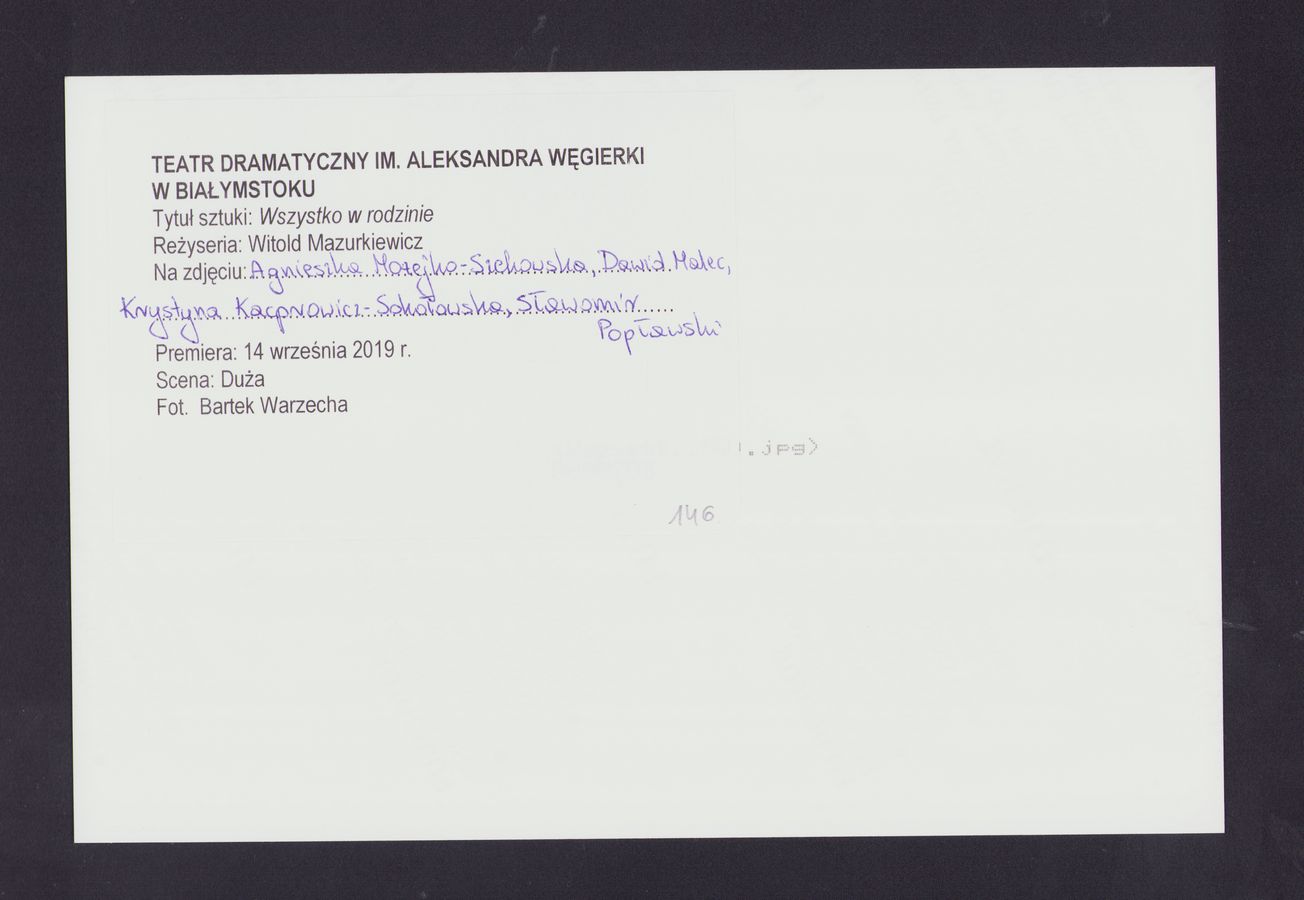 TEATR DRAMATYCZNY IM. ALEKSANDRA WĘGIERKI
W BIAŁYMSTOKU
Tytuł sztuki: Wszystko w rodzinie
Reżyseria: Witold Mazurkiewicz
Na zdjęciu: Agnieszka Możejko-Szekowska, Dawid Malec,
Krystyna Kacprowicz-Sokołowska, Sławomir
Popławski
Premiera: 14 września 2019 r.
Scena: Duża
Fot. Bartek Warzecha
.jpg)
146